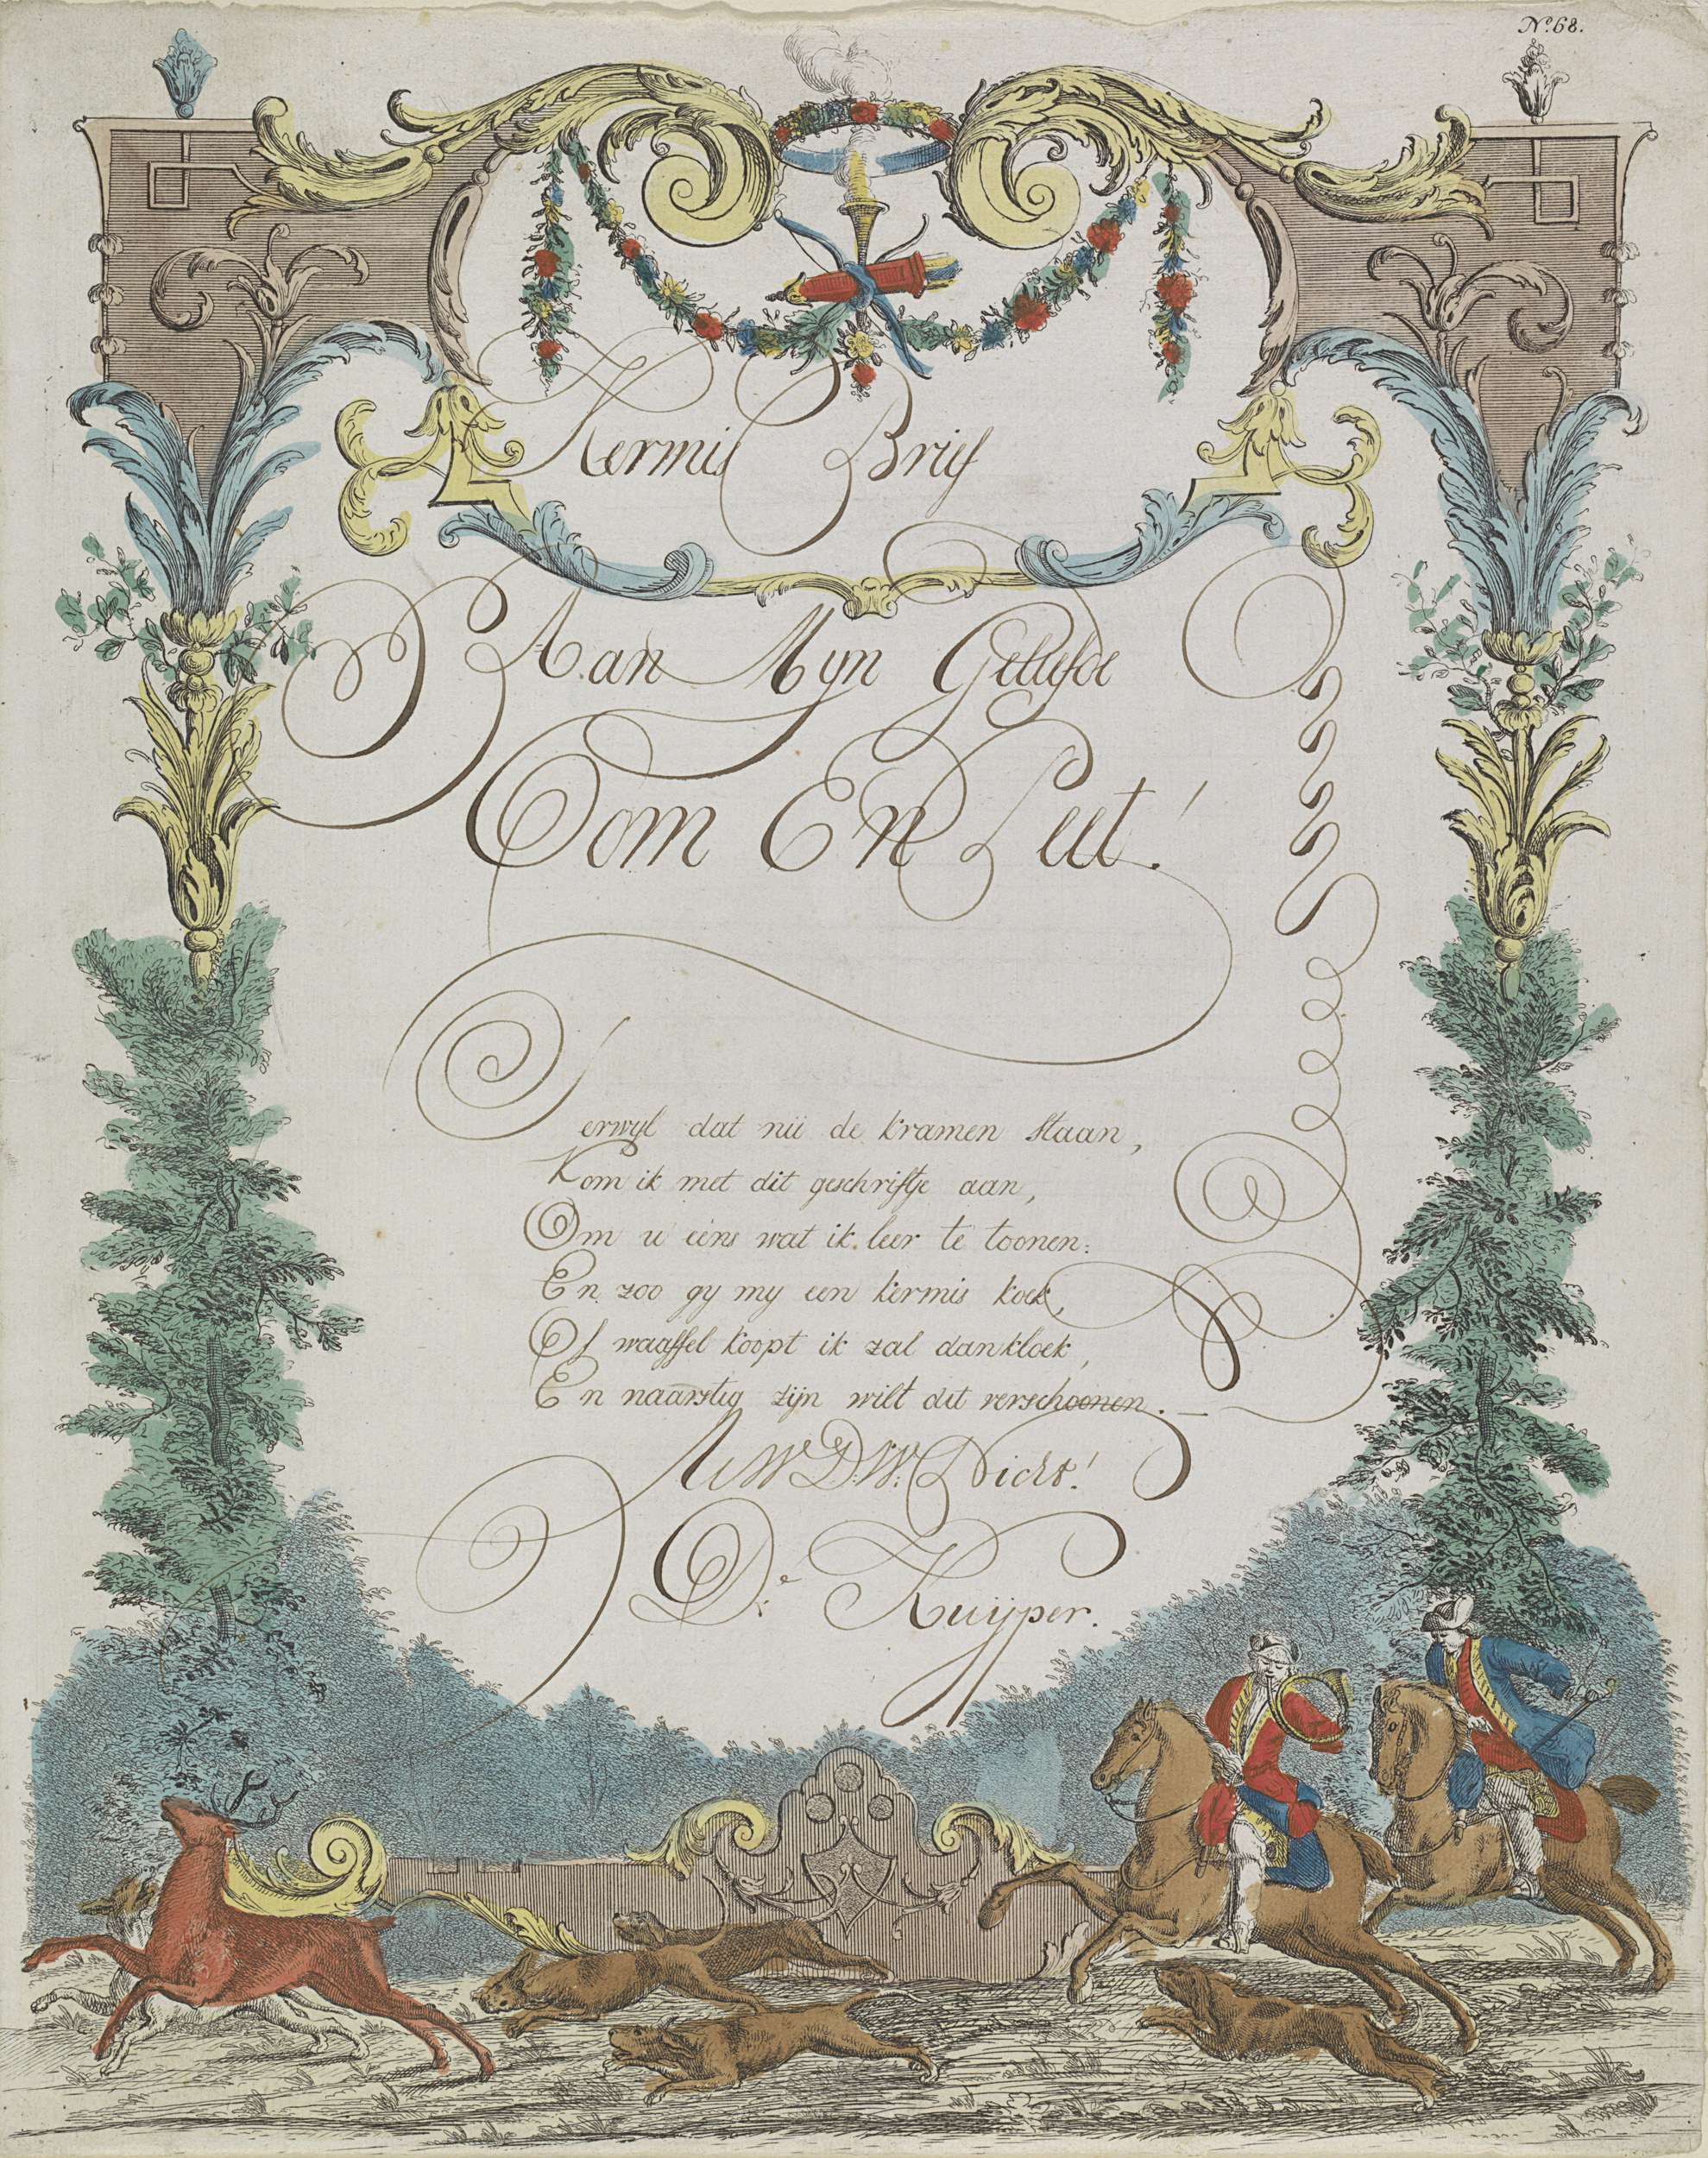 No. 68.
Kermis Brief
Aan Myn Geliefde
Oom En Peet!
Terwyl dat nu de kramen staan,
Kom ik met dit geschriftje aan,
Om u eens wat ik leer te toonen:
En zoo gy my een kermis koek,
Of waaffel koopt ik zal dan kloek,
En naarstig zijn wilt dit verschoonen.
UWDW: Nicht!
De Kuijper.